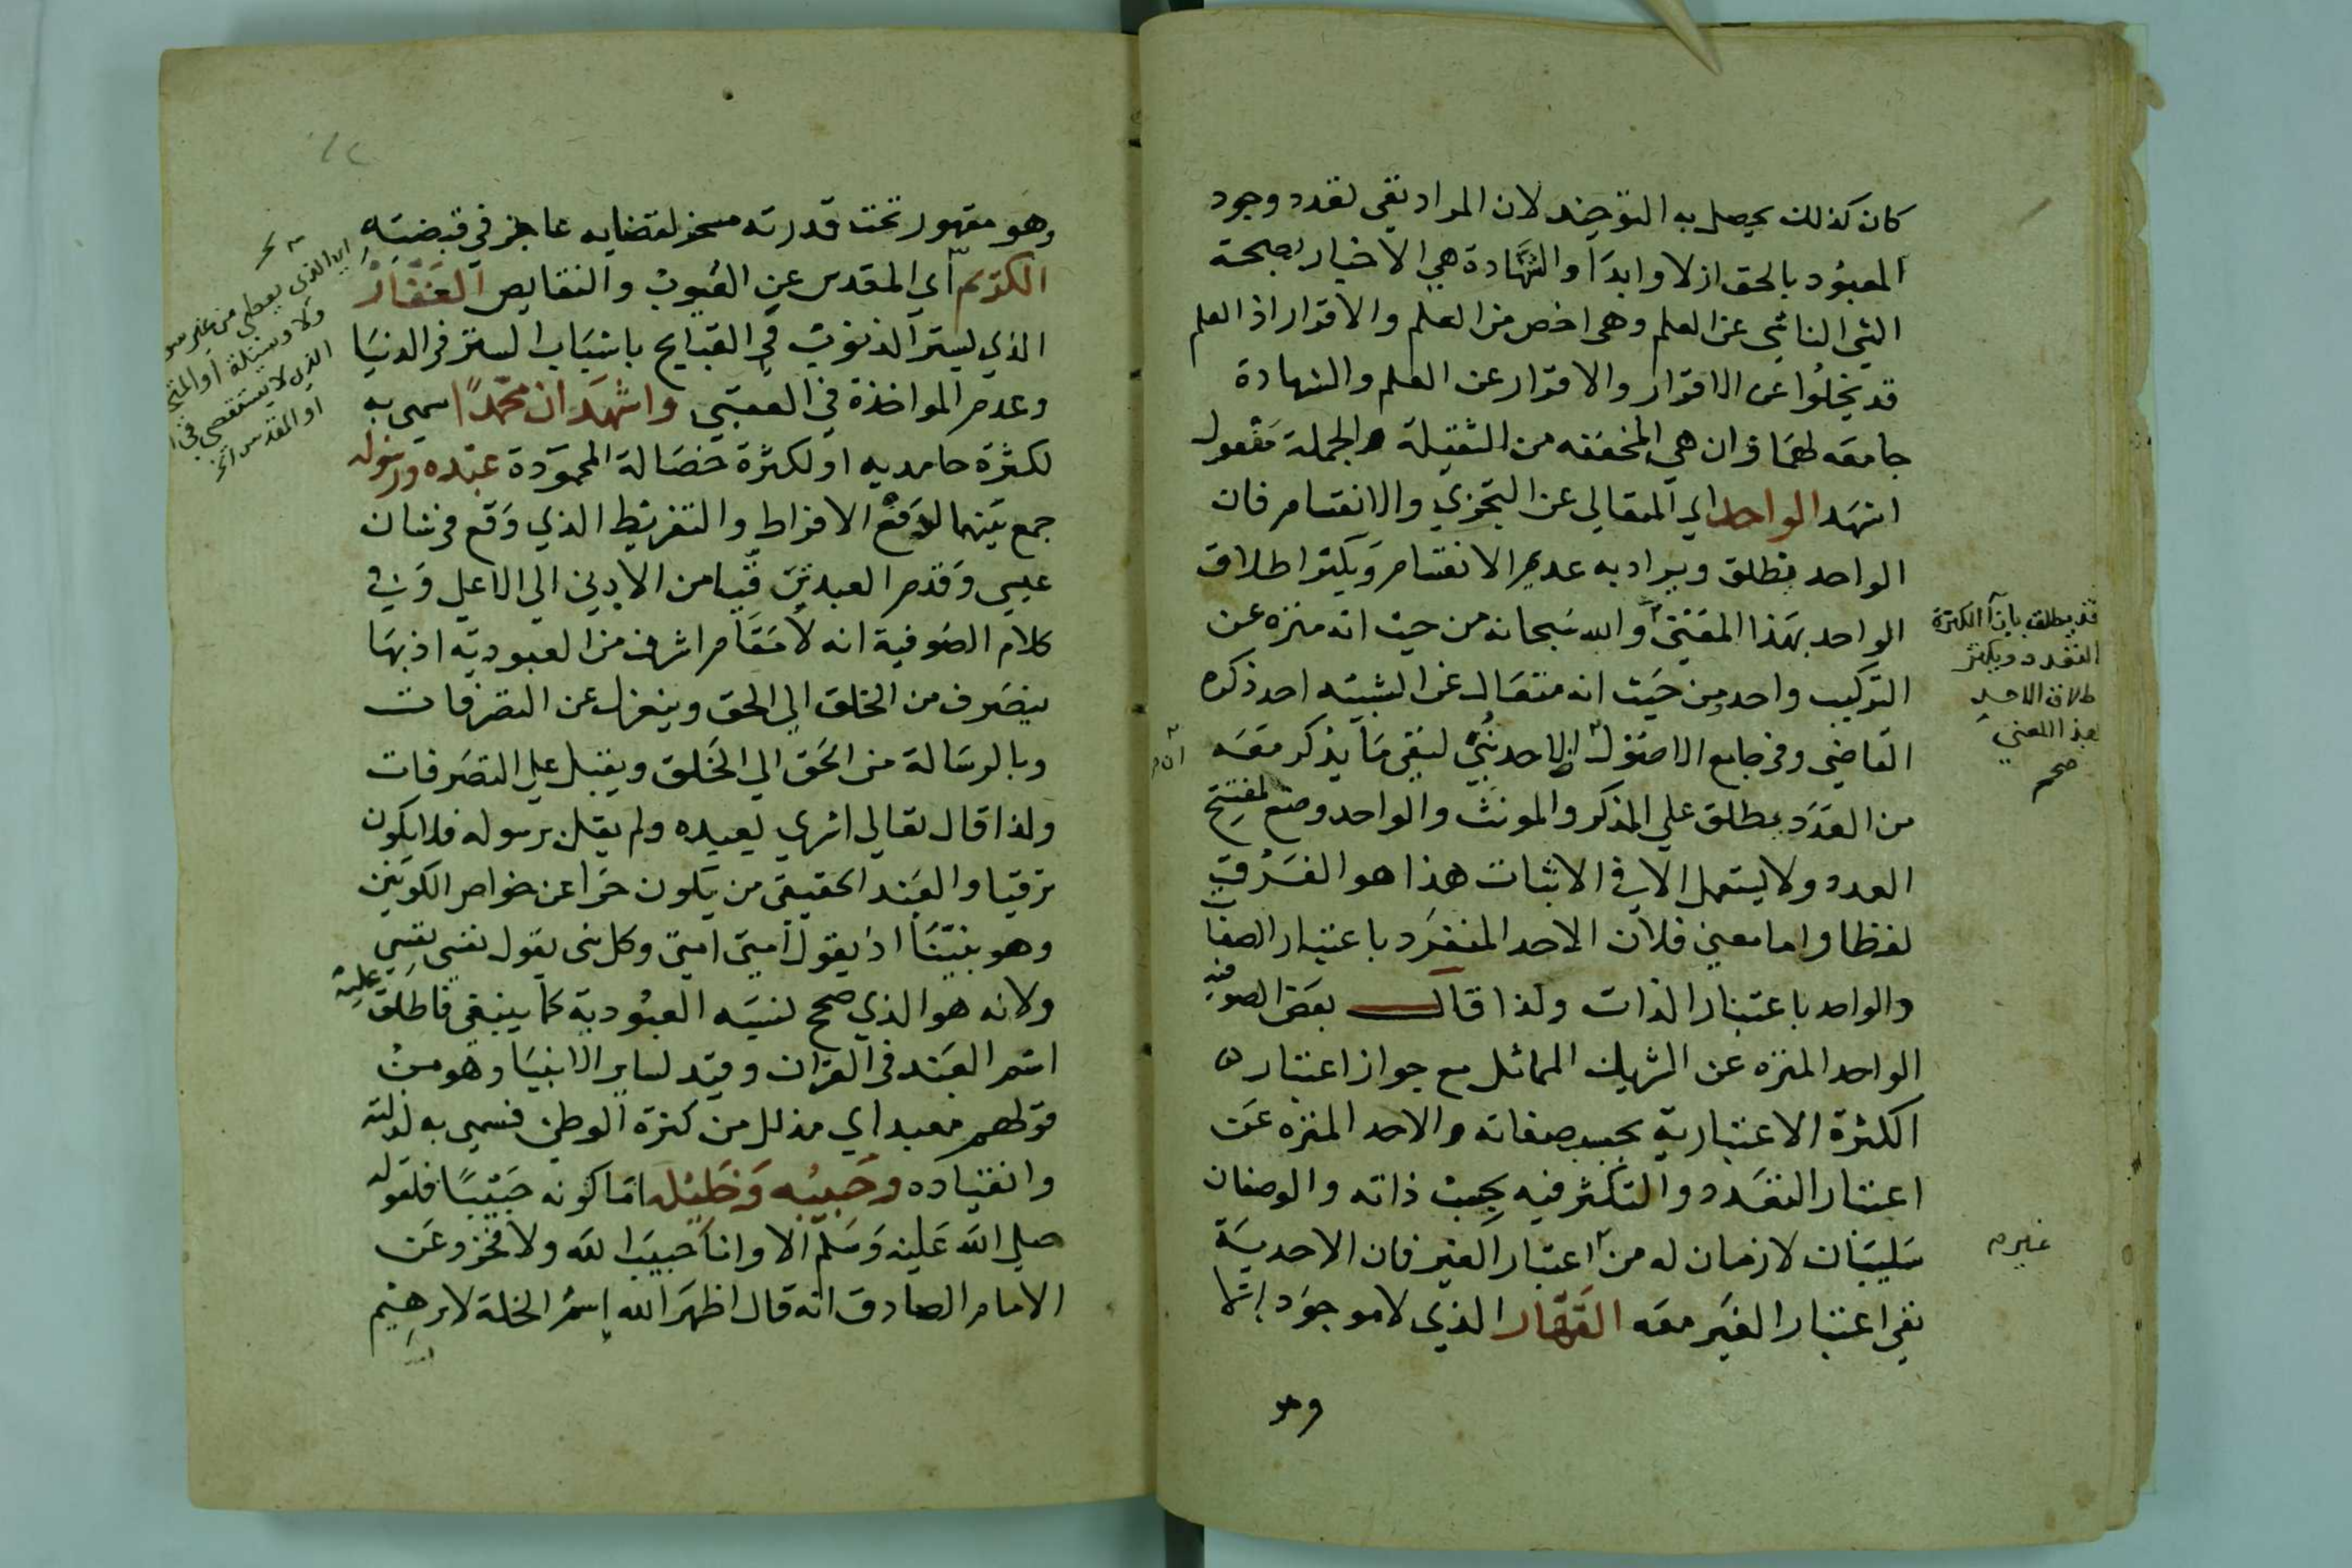 كان كذلك يحصل به التوحيد لان المراد نفي تعدد وجود
المعبود بالحق ازلا وابدا والشهادة هي الاخبار بصحة
الشي الناشي عن العلم وهي اخص من العلم والاقرار اذ العلم
قد يخلوا عن الاقرار والاقرار عن العلم والشهادة
جامعه لهما وان هي المخففه من الثقيلة والجملة مفعول
اشهد الواحد اي المتعالي عن التجزي والانقسام فان
الواحد يطلق ويراد به عدم الانقسام ويكثر اطلاق
الواحد بهذا المعني والله سبحانه من حيث انه منزه عن
التركيب واحد ومن حيث انه متعال عن الشبيه احد ذكره
القاضي وفي جامع الاصول الاحد بني لنفي ما يذكر معه
من العدد يطلق علي المذكر والمونث والواحد وضع لمفتتح
العدد ولا يستعمل الا في الاثبات هذا هو الفرق
لفظا واما معني فلان الاحد المنفرد باعتبار الصفا
والواحد باعتبار الذات ولذا قال بعض الصوفيه
الواحد المنزه عن الشريك المماثل مع جواز اعتبار
الكثرة الاعتبارية بحسب صفاته والاحد المنزه عن
اعتبار التعدد والتكثر فيه بحسب ذاته والوصفان
سلبيان لازمان له من اعتبار الغير فان الاحدية
نفي اعتبار الغير معه القهار الذي لا موجود الا
وهو
قد يطلق بازاء الكثرة
التعدد ويكثر
طلاق الاحد
بهذا المعني
صح
غير م
وهو مقهور تحت قدرته مسخر لقضايه عاجز في قبضته
الكريم اي المقدس عن العيوب والنقايص الغفار
الذي يستر الذنوب في القبايح باسباب الستر في الدنيا
وعدم المواخذة في العقبي واشهد ان محمدا سمي به
لكثرة حامديه او لكثرة خصاله المحمودة عبده ورسوله
جمع بينهما لدفع الافراط والتفريط الذي وقع في شان
عيسي وقدم العبد ترقيا من الادني الي الاعلي وفي
كلام الصوفية انه لا مقام اشرف من العبودية اذ بها
ينصرف من الخلق الي الحق وينعزل عن التصرفات
وبالرسالة من الحق الي الخلق ويقبل علي التصرفات
ولذا قال تعالي اسري بعبده ولم يقل برسوله فلا يكون
ترقيا والعبد الحقيقي من يكون حرا عن الكونين
وهو نبينا اذ يقول امتي امتي وكل نبي يقول نفسي نفسي
ولانه هو الذي صح نسبه العبودية كما ينبغي فاطلق عليه
اسم العبد في القران وقيد لساير الانبيا وهو من
قولهم معبد اي مذلل من كثرة الوطي فسمي به لذلته
وانقياده وحبيبه وخليله اما كونه حبيبا فلقوله
صلي الله عليه وسلم الا وانا حبيب الله ولا فخر وعن
الامام الصادق انه قال اظهر الله اسم الخلة لابرهيم
اي الذي يعطي من غير سو
ولا وسيلة او المتجا
الذي لا يستقصي في ا
او المقدس